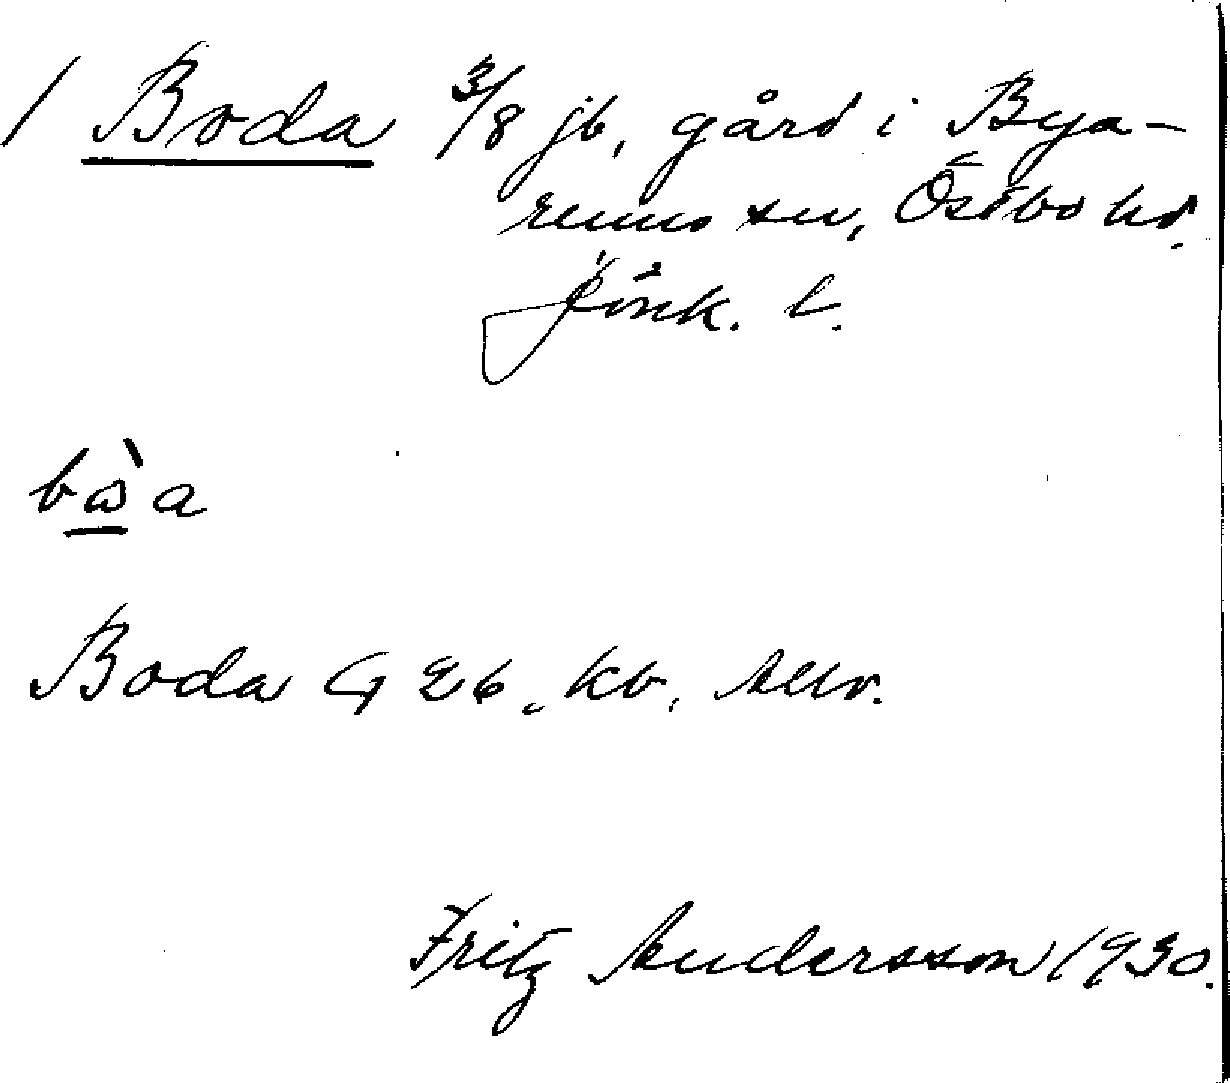 1 Boda 3/8 jb, gård i Bya-
rums sn, Östbo hd.
Jönk. l.
bὼa
Boda G Eb, kb, allr.
Fritz Andersson 1930.